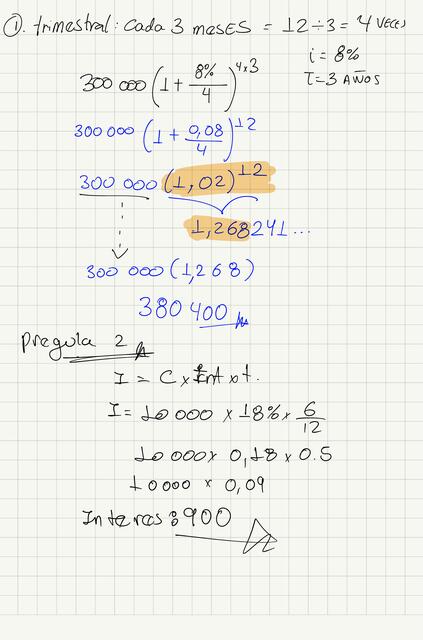 ①. trimestral: cada 3 meses = 12 ÷ 3 = 4 veces
i = 8%
T = 3 AÑOS
300 000 (1 + 8%/4)^4x3
300 000 (1 + 0,08/4)^12
300 000 (1,02)^12
1,268241...
300 000 (1,268)
380 400
Pregula 2
I = C x Int x t.
I = 10 000 x 18% x 6/12
10 000 x 0,18 x 0.5
10000 x 0,09
Interes: 900